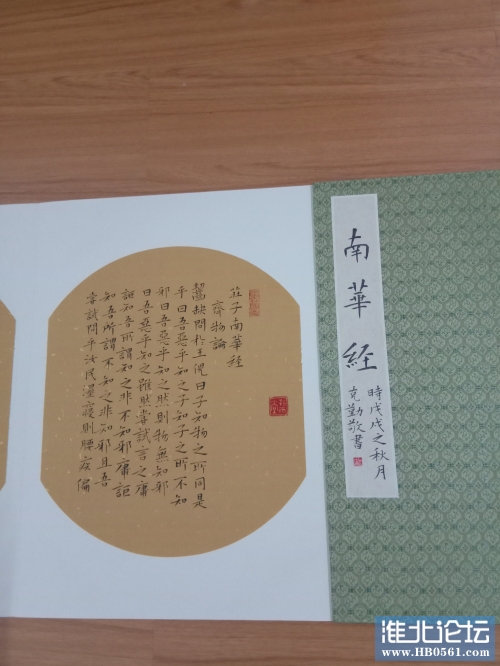 南華经
時戊戌之秋月
克勤敬書
莊子南華经
齊物論
齧缺問於王倪曰子知物之所同是
乎曰吾惡乎知之子知子之所不知
邪曰吾惡乎知之然則物無知邪
曰吾惡乎知之雖然嘗試言之庸
詎知吾所謂知之非不知邪庸詎
知吾所謂不知之非知邪且吾
嘗試問乎汝民溼寢則腰疾偏
淮北论坛
www.HB0561.com